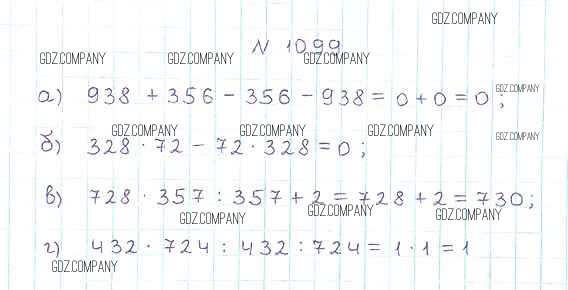 GDZ.COMPANY
N 1099
GDZ.COMPANY GDZ.COMPANY GDZ.COMPANY
а) 938 + 356 - 356 - 938 = 0 + 0 = 0 ;
GDZ.COMPANY
GDZ.COMPANY GDZ.COMPANY GDZ.COMPANY
GDZ.COMPANY
б) 328 · 72 - 72 · 328 = 0 ;
в) 728 · 357 : 357 + 2 = 728 + 2 = 730 ;
GDZ.COMPANY GDZ.COMPANY GDZ.COMPANY
г) 432 · 724 : 432 : 724 = 1 · 1 = 1
GDZ.COMPANY